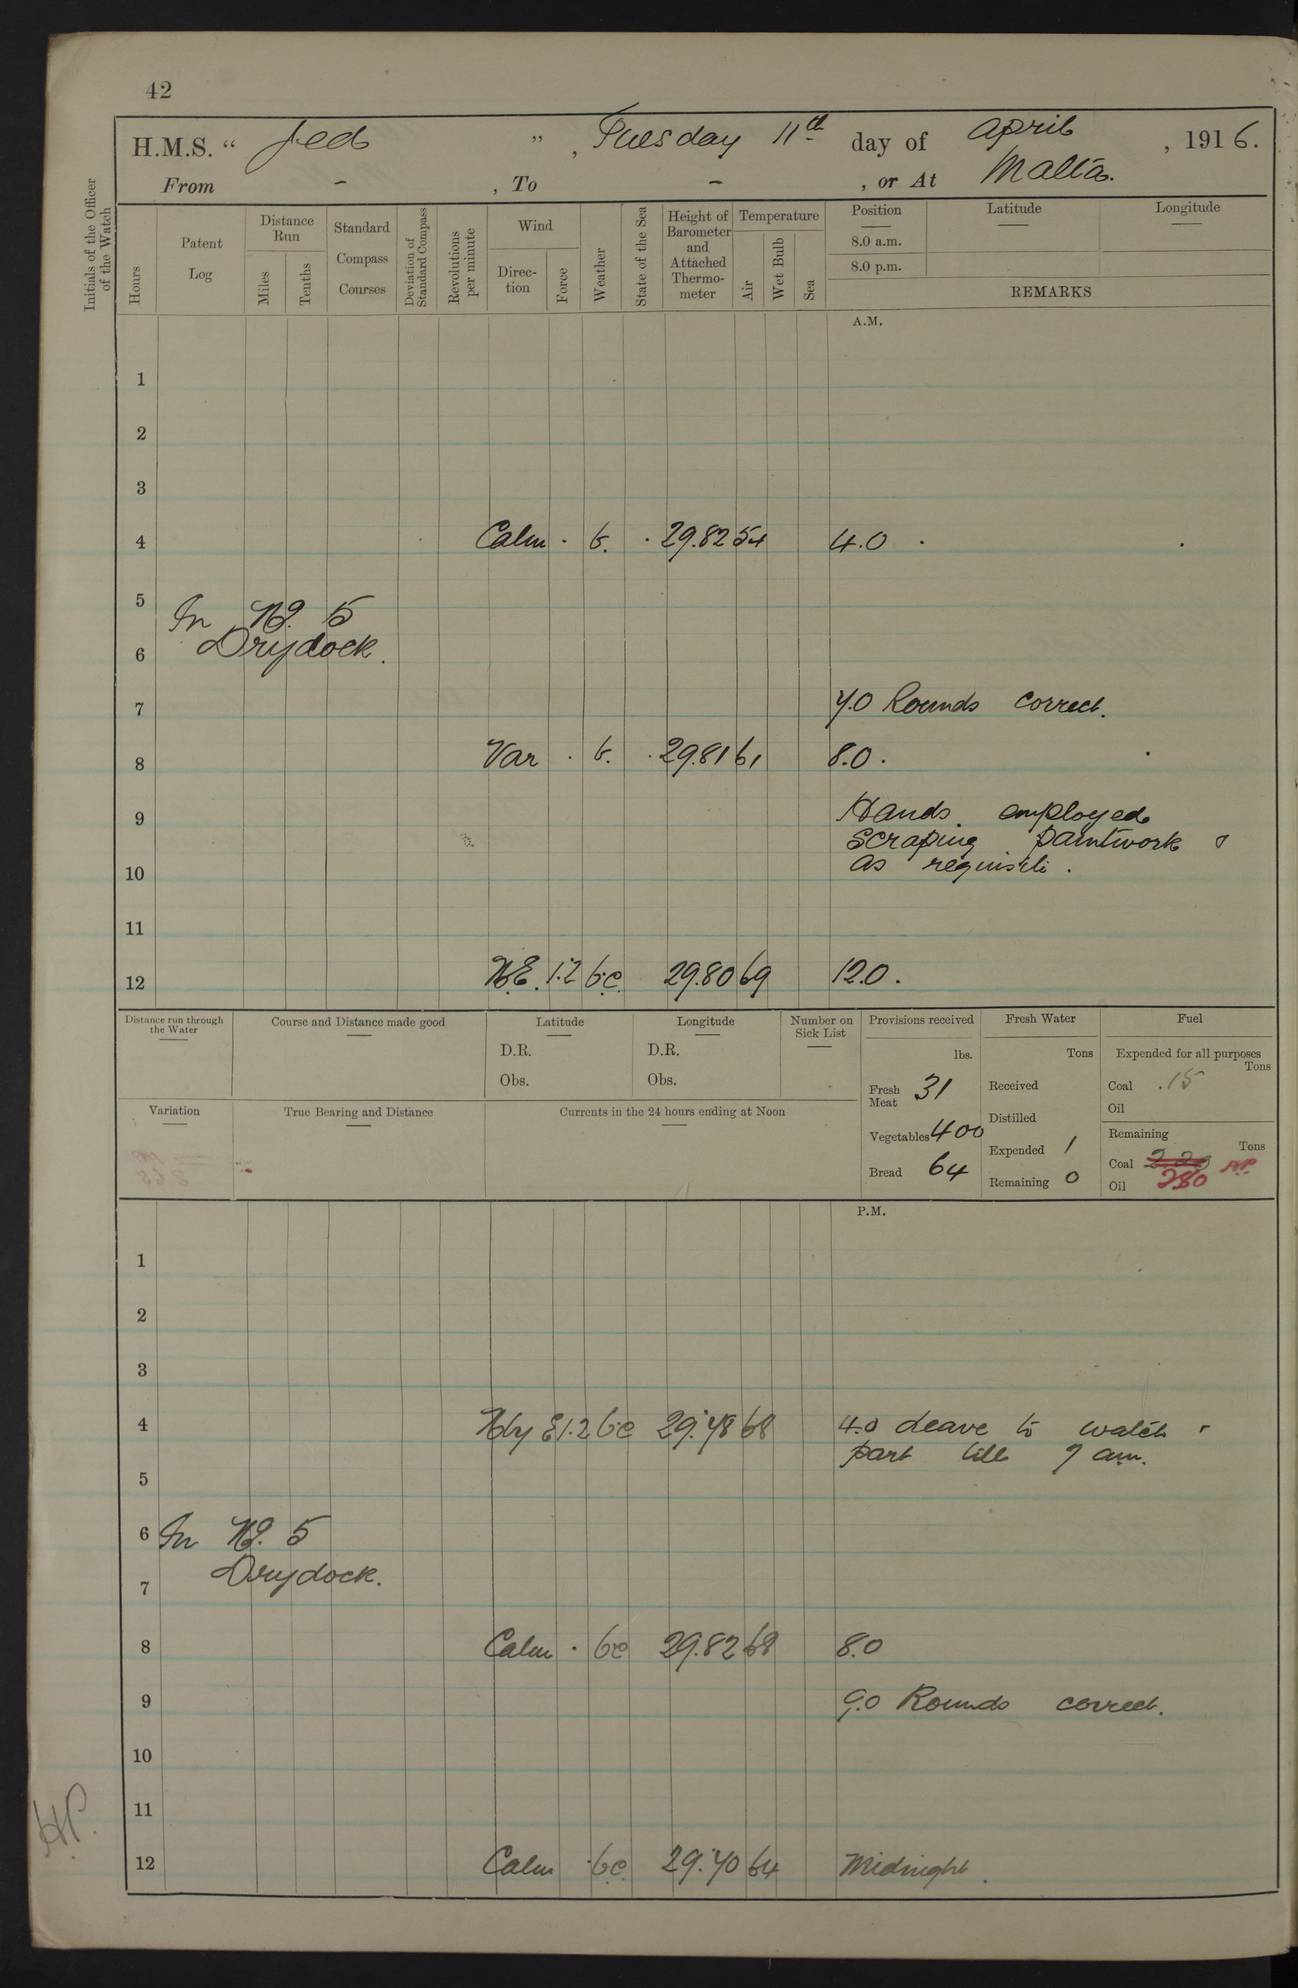 42
H.M.S. “ Jed ” , Tuesday 11th day of April , 1916.
From - , To - , or At Malta.
Initials of the Officer of the Watch
Hours
Patent Log
Distance Run
Miles
Tenths
Standard Compass Courses
Deviation of Standard Compass
Revolutions per minute
Wind
Direction
Force
Weather
State of the Sea
Height of Barometer and Attached Thermometer
Temperature
Air
Wet Bulb
Sea
Position
8.0 a.m.
8.0 p.m.
Latitude
Longitude
REMARKS
A.M.
1
2
3
4 Calm . b. . 29.82 54 4.0 .
5 In No. 5
6 Drydock.
7 7.0 Rounds correct.
8 Var . b. . 29.81 61 8.0 .
9 Hands employed
scraping paintwork &
10 as requisite .
11
12 N.E. 1.2 b.c. 29.80 69 12.0 .
Distance run through the Water
Course and Distance made good
Latitude
D.R.
Obs.
Longitude
D.R.
Obs.
Number on Sick List
Provisions received
lbs.
Fresh Meat 31
Vegetables 400
Bread 64
Fresh Water
Tons
Received
Distilled
Expended 1
Remaining 0
Fuel
Expended for all purposes
Tons
Coal .15
Oil
Remaining
Tons
Coal 220
280
Oil
Variation
True Bearing and Distance
Currents in the 24 hours ending at Noon
P.M.
1
2
3
4 N by E 1.2 bc 29.78 68 4.0 Leave to watch
part till 7 am.
5
6 In No. 5
7 Drydock.
8 Calm . bc 29.82 68 8.0
9 9.0 Rounds correct.
10
11
HP.
12 Calm . b.c. 29.70 64 Midnight.